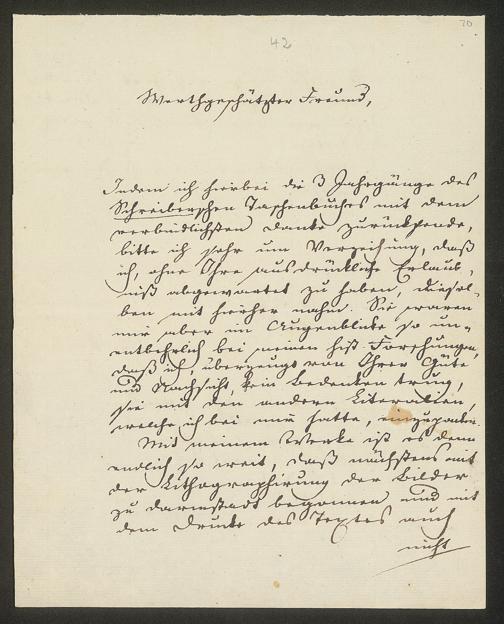 70
42
Werthgeschätzter Freund,
Indem ich hierbei die 3 Jahrgänge des
Schreiberschen Taschenbuches mit dem
verbindlichsten Danke zurücksende,
bitte ich sehr um Verzeihung, daß
ich, ohne Ihre ausdrückliche Erlaub-
niß abgewartet zu haben, diesel-
ben mit hierher nahm. Sie waren
mir aber im Augenblicke so un-
entbehrlich bei meinen hist. Forschungen,
daß ich, überzeugt von Ihrer Güte
und Nachsicht, kein Bedenken trug,
sie mit den andern Literalien,
welche ich bei mir hatte, einzupacken.
Mit meinem Werke ist es denn
endlich so weit, daß nächstens mit
der Lithographirung der Bilder
zu Darmstadt begonnen und mit
dem Drucke des Textes auch
nicht